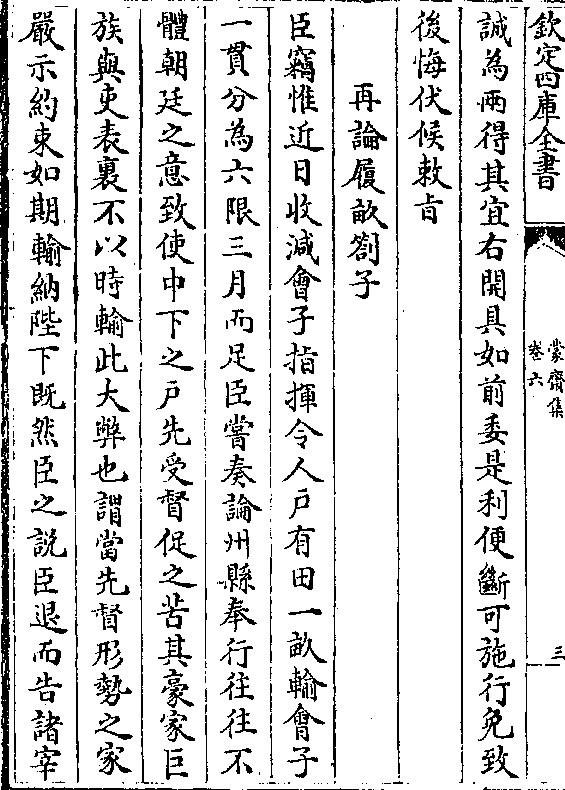 欽定四庫全書
蒙齋集
卷六
三
誠為兩得其宜右開具如前委是利便斷可施行免致
後悔伏候敕旨
再論履畝劄子
臣竊惟近日收減會子指揮令人戶有田一畝輸會子
一貫分為六限三月而足臣嘗奏論州縣奉行往往不
體朝廷之意致使中下之戶先受督促之苦其豪家巨
族與吏表裏不以時輸此大弊也謂當先督形勢之家
嚴示約束如期輸納陛下既然臣之說臣退而告諸宰